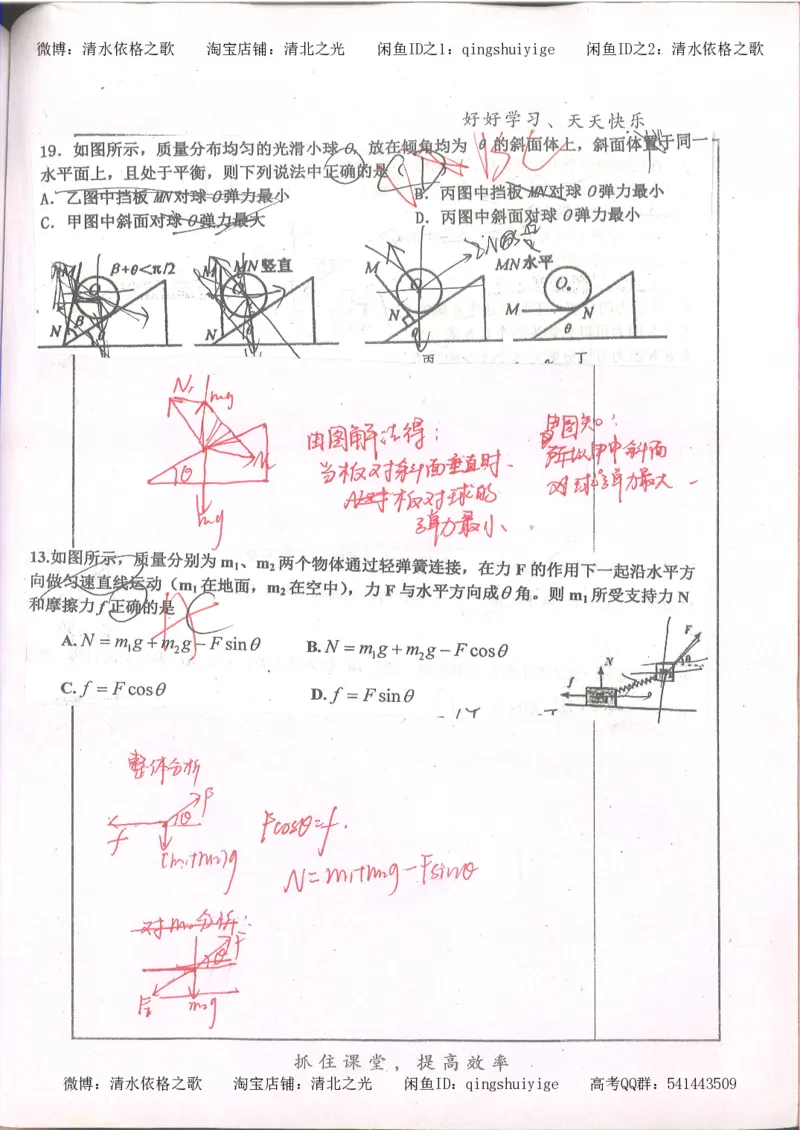 微博：清水依格之歌 淘宝店铺：清北之光 闲鱼ID之1：qingshuiyige 闲鱼ID之2：清水依格之歌
好好学习、天天快乐
19．如图所示，质量分布均匀的光滑小球O，放在倾角均为 θ 的斜面体上，斜面体置于同一
水平面上，且处于平衡，则下列说法中正确的是（
A．乙图中挡板MN对球O弹力最小 B．丙图中挡板MN对球O弹力最小
C．甲图中斜面对球O弹力最大 D．丙图中斜面对球O弹力最小
M O β+θ<π/2 N β θ
M MN竖直 O N θ
M O N θ 丙
MN水平 O M N θ 丁
N₁ mg
θ
mg
由图解法得：
当板对斜面垂直时
板对球的
弹力最小、
由图知：
所以甲中斜面
对球弹力最大
13.如图所示，质量分别为 m₁、m₂ 两个物体通过轻弹簧连接，在力 F 的作用下一起沿水平方
向做匀速直线运动（m₁ 在地面，m₂ 在空中），力 F 与水平方向成 θ 角。则 m₁ 所受支持力 N
和摩擦力 f 正确的是
A. N = m₁g + m₂g − F sin θ B. N = m₁g + m₂g − F cos θ
C. f = F cos θ D. f = F sin θ
F θ N f
整体分析
F θ f
(m₁+m₂)g
Fcosθ=f.
N=m₁+m₂g−Fsinθ
对m₂分析：
F θ
m₂g
抓住课堂，提高效率
微博：清水依格之歌 淘宝店铺：清北之光 闲鱼ID：qingshuiyige 高考QQ群：541443509